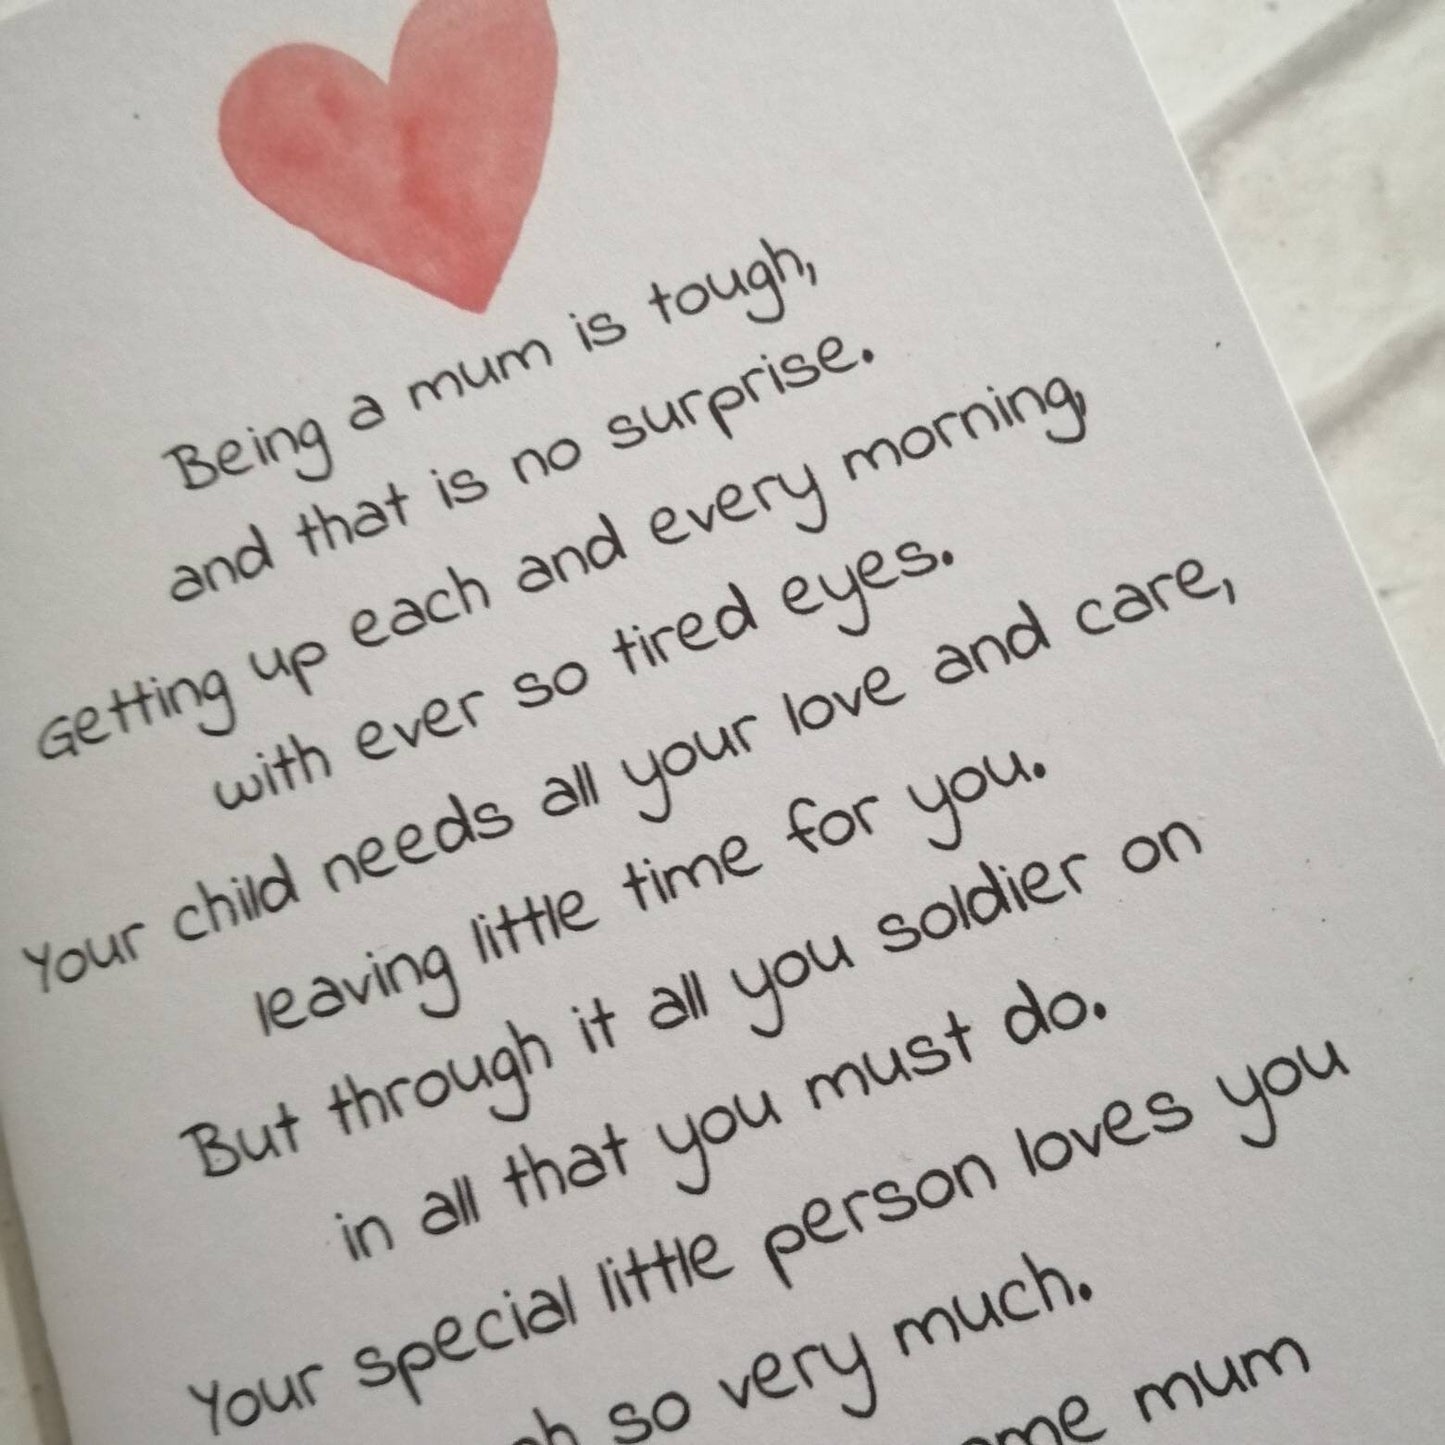 Being a mum is tough,
and that is no surprise.
Getting up each and every morning,
with ever so tired eyes.
Your child needs all your love and care,
leaving little time for you.
But through it all you soldier on
in all that you must do.
Your special little person loves you
so very much.
mum